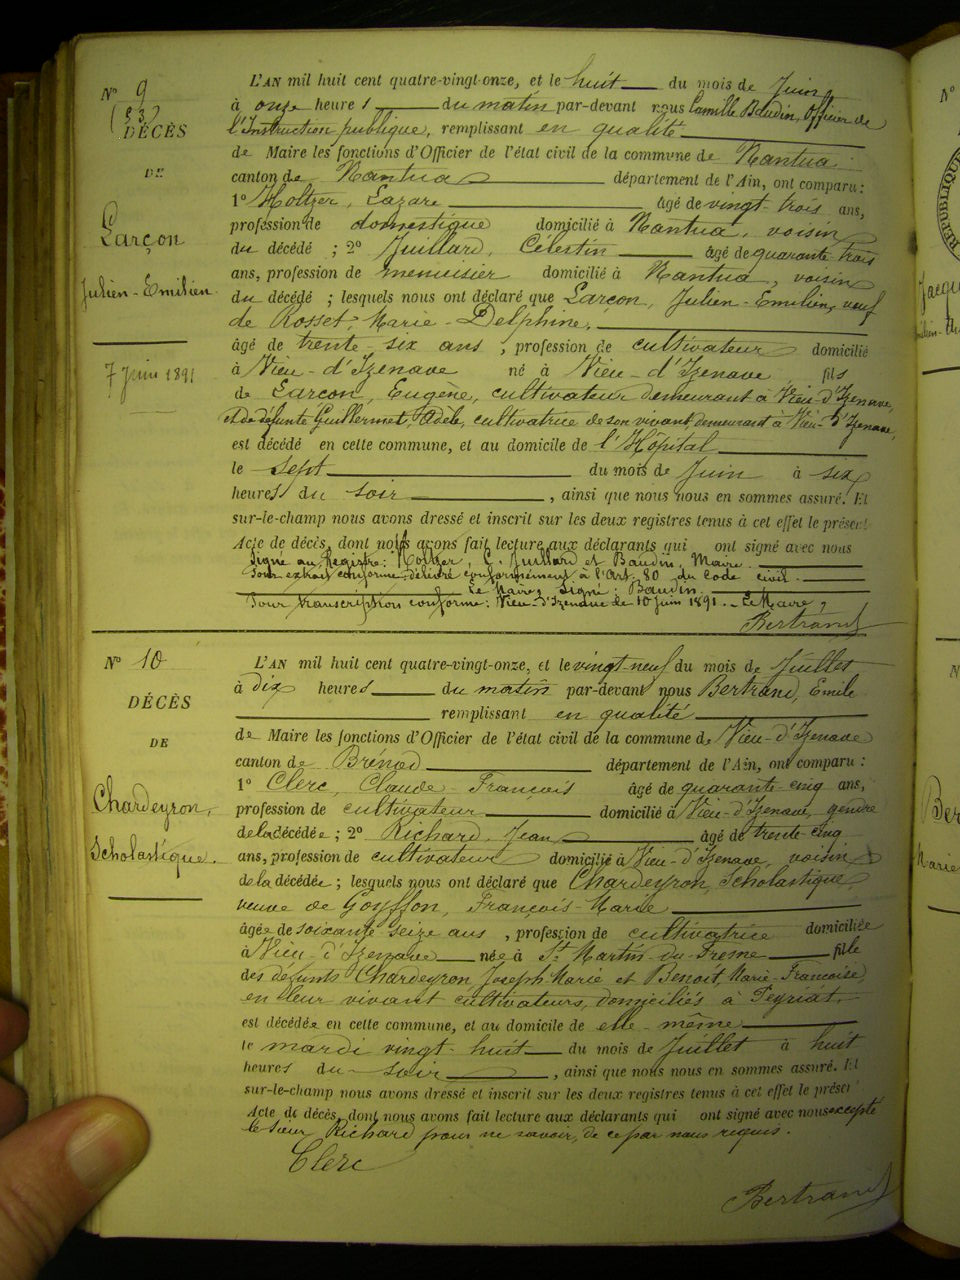 N° 9
(53)
DÉCÈS
DE
Larçon
Julien-Emilien
7 Juin 1891
L'AN mil huit cent quatre-vingt-onze, et le huit du mois de Juin
à onze heures du matin par-devant nous Camille Baudin, Officier de
l'Instruction publique, remplissant en qualité
de Maire les fonctions d'Officier de l'état civil de la commune de Nantua
canton de Nantua département de l'Ain, ont comparu :
1° Holtzer, Lazare âgé de vingt-trois ans,
profession de domestique domicilié à Nantua, voisin
du décédé ; 2° Juillard, Célestin âgé de quarante-trois
ans, profession de menuisier domicilié à Nantua, voisin
du décédé ; lesquels nous ont déclaré que Larçon, Julien-Emilien, veuf
de Rosset, Marie-Delphine,
âgé de trente-six ans, profession de cultivateur domicilié
à Vieu-d'Izenave né à Vieu-d'Izenave fils
de Larçon, Eugène, cultivateur demeurant à Vieu-d'Izenave,
et de défunte Guillermet, Adèle, cultivatrice de son vivant demeurant à Vieu-d'Izenave,
est décédé en cette commune, et au domicile de l'Hôpital
le sept du mois de Juin à six
heures du soir, ainsi que nous nous en sommes assuré. Et
sur-le-champ nous avons dressé et inscrit sur les deux registres tenus à cet effet le présent
Acte de décès, dont nous avons fait lecture aux déclarants qui ont signé avec nous
Signé au Registre : Holtzer, C. Juillard et Baudin, Maire.
Pour extrait conforme délivré conformément à l'Art. 80 du Code civil.
Le Maire, Signé : Baudin.
Pour transcription conforme : Vieu-d'Izenave le 10 Juin 1891. Le Maire,
Bertrand
N° 10
DÉCÈS
DE
Chardeyron,
Scholastique.
L'AN mil huit cent quatre-vingt-onze, et le vingt-neuf du mois de Juillet
à dix heures du matin par-devant nous Bertrand, Emile
remplissant en qualité
de Maire les fonctions d'Officier de l'état civil de la commune de Vieu-d'Izenave
canton de Brénod département de l'Ain, ont comparu :
1° Clerc, Claude-François âgé de quarante-cinq ans,
profession de cultivateur domicilié à Vieu-d'Izenave, gendre
de la décédée ; 2° Richard, Jean âgé de trente-cinq
ans, profession de cultivateur domicilié à Vieu-d'Izenave, voisin
de la décédée ; lesquels nous ont déclaré que Chardeyron, Scholastique,
veuve de Goyffon, François-Marie
âgée de soixante-seize ans, profession de cultivatrice domiciliée
à Vieu-d'Izenave née à St Martin-du-Fresne fille
des défunts Chardeyron, Joseph-Marie et Benoit, Marie-Françoise,
en leur vivant cultivateurs, domiciliés à Peyriat,
est décédée en cette commune, et au domicile de elle-même
le mardi vingt-huit du mois de Juillet à huit
heures du soir, ainsi que nous nous en sommes assuré. Et
sur-le-champ nous avons dressé et inscrit sur les deux registres tenus à cet effet le présent
Acte de décès, dont nous avons fait lecture aux déclarants qui ont signé avec nous excepté
le sieur Richard pour ne savoir, de ce par nous requis.
Clerc
Bertrand
N°
RÉPUBLIQUE